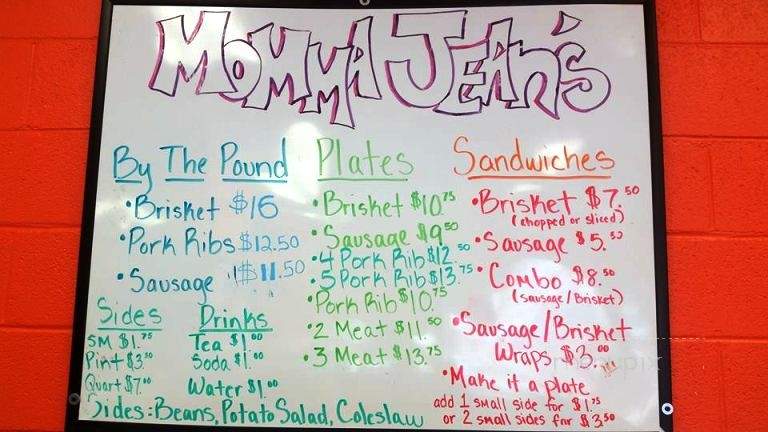 Momma Jean's
By The Pound
• Brisket $16
• Pork Ribs $12.50
• Sausage $11.50
Sides
SM $1.75
Pint $3.50
Quart $7.00
Drinks
Tea $1.00
Soda $1.00
Water $1.00
Sides: Beans, Potato Salad, Coleslaw
Plates
• Brisket $10.75
• Sausage $9.50
• 4 Pork Rib $12.50
• 5 Pork Rib $13.75
• Pork Rib $10.75
• 2 Meat $11.50
• 3 Meat $13.75
Sandwiches
• Brisket $7.50
(chopped or sliced)
• Sausage $5.50
• Combo $8.50
(sausage/Brisket)
• Sausage/Brisket
Wraps $3.00
• Make it a plate
add 1 small side for $1.75
or 2 small sides for $3.50